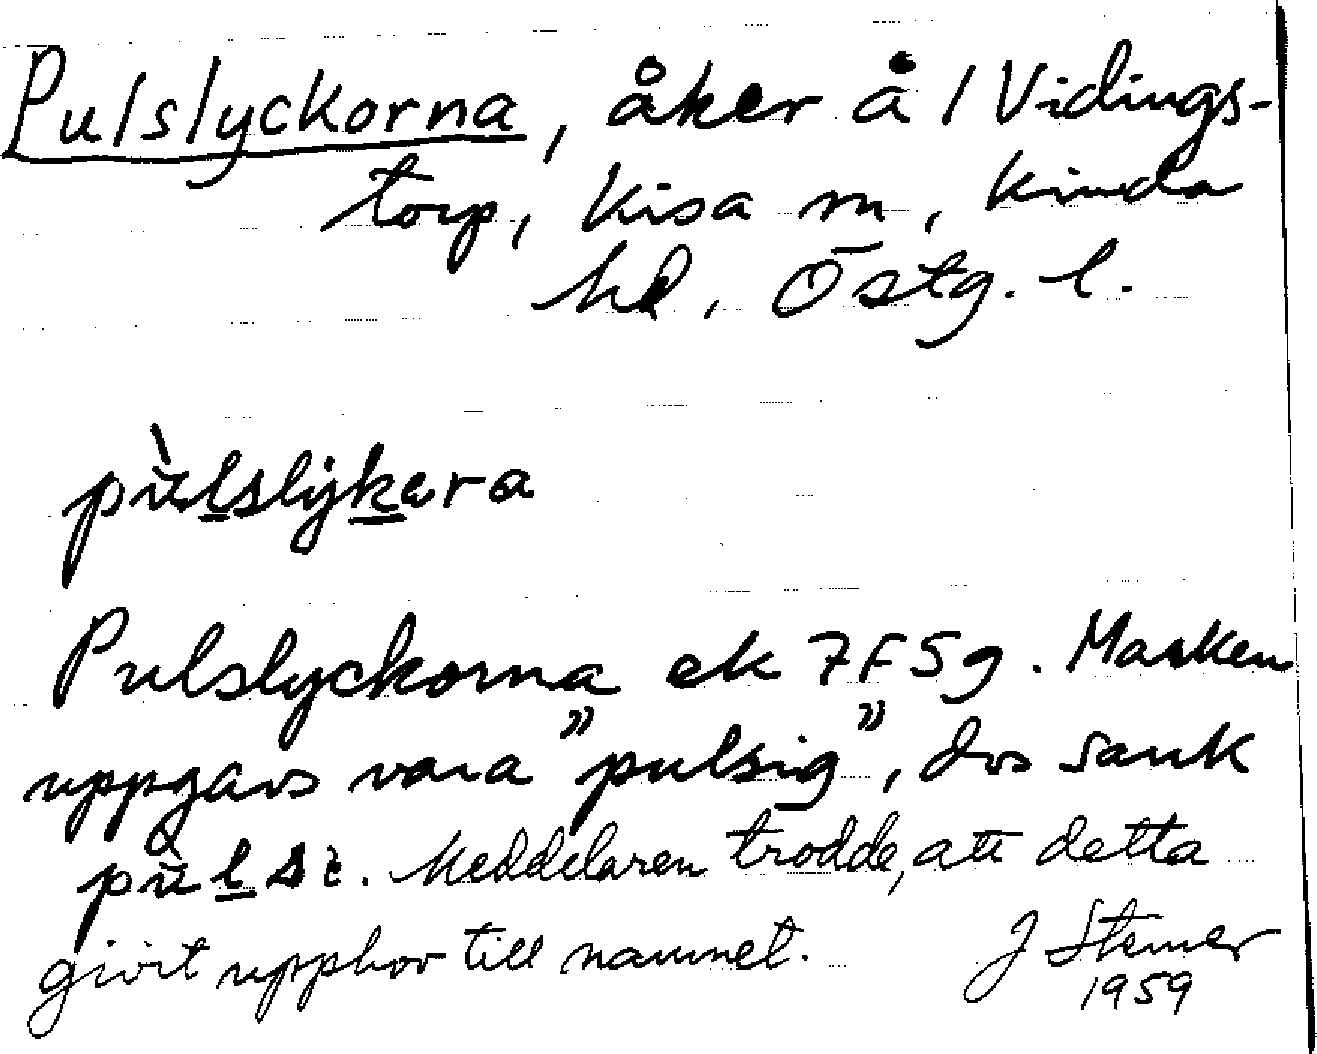 Pulslyckorna, åker å 1 Vidings-
torp, Kisa sn, Kinda
hd, Östg. l.
pùlslykera
Pulslyckorna ek 7F5g. Marken
uppgavs vara "pulsig", dvs sank
pùlsi. Meddelaren trodde, att detta
givit upphov till namnet. J Stemer
1959